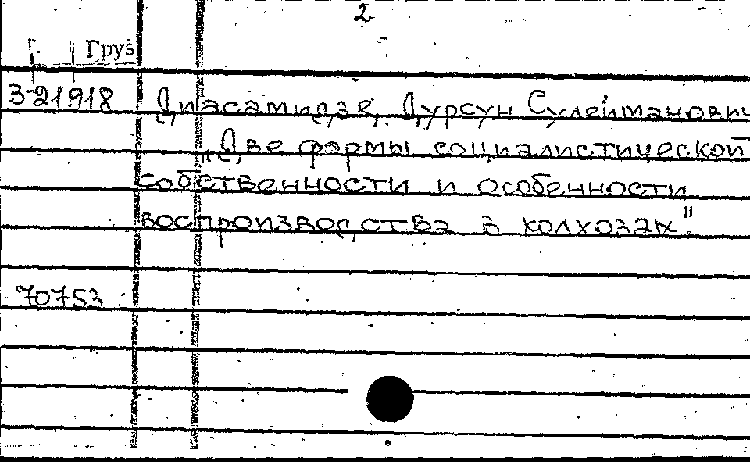 2
Груз
3-21918 Диасамидзе, Дурсун Сулейманович
„Две формы социалистической
собственности и особенности
воспроизводства в колхозах".
70753